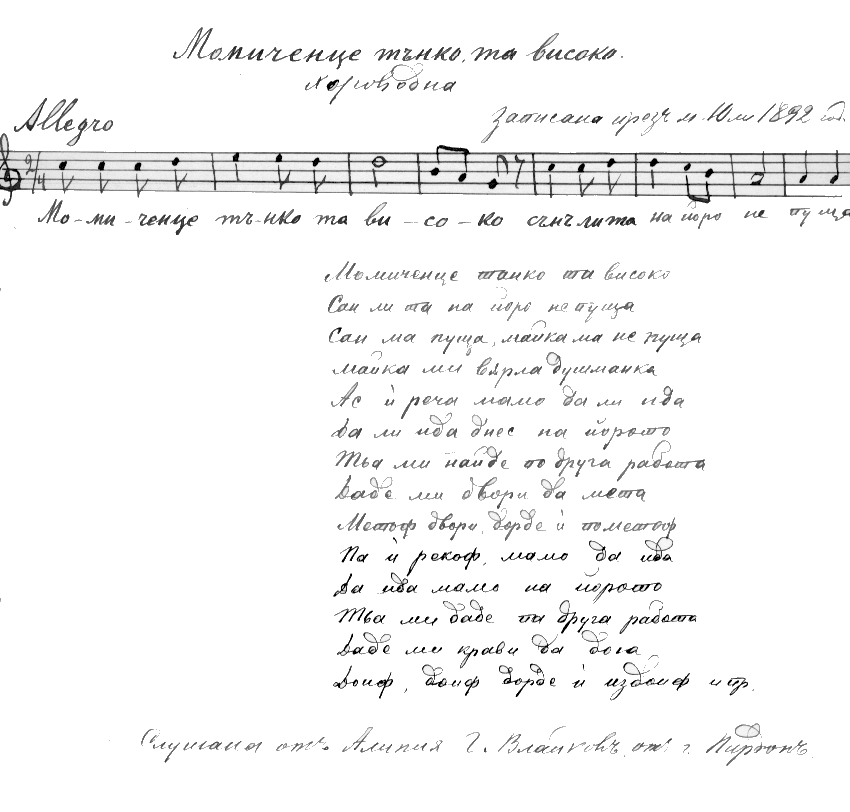 Момиченце тънко, та високо.
Хороводна
Allegro
Записана презъ м. Юли 1892 год.
2/4
Мо-ми-ченце тъ-нко та ви-со-ко сънъ ли та на йоро не пуща
Момиченце танко та високо
Сан ли та на йоро не пуща
Сан ма пуща, майка ма не пуща
майка ми вярла душманка
Ас ѝ реча мамо да ли ида
Да ли ида днес на йорото
Тьа ми найде то друга работа
Даде ми двори да мета
Метоф двори, дорде ѝ пометоф
Па ѝ рекоф, мамо да ида
Да ида мамо на йорото
Тьа ми даде та друга работа
Даде ми крави да доїа
Доиф, доиф дорде ѝ издоиф и пр.
Слушана отъ Алипия Г. Влайковъ отъ г. Пирдопъ